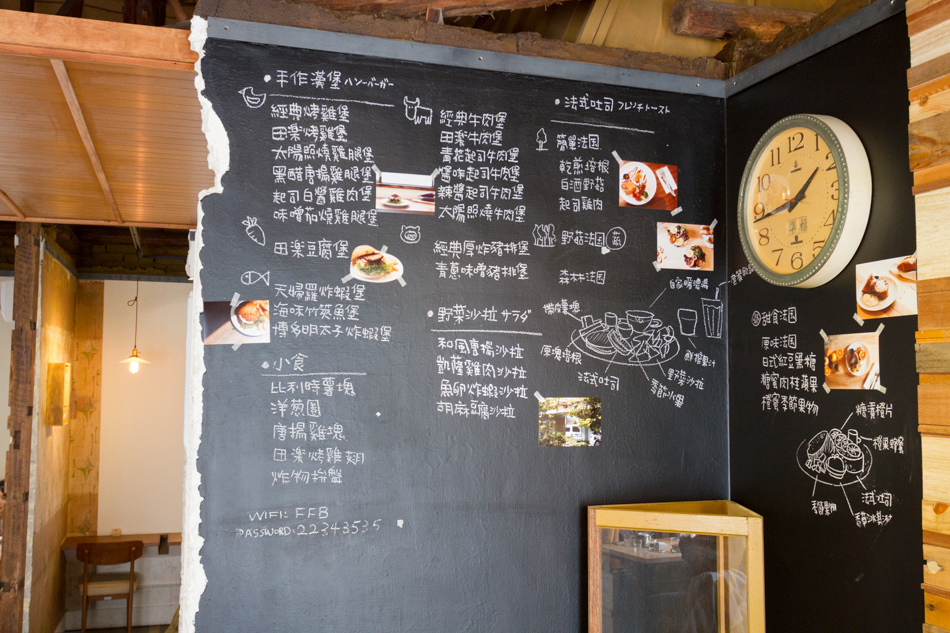 手作漢堡 ハンバーガー
經典烤雞堡
田楽烤雞堡
太陽照燒雞腿堡
黑醋唐揚雞腿堡
起司白醬雞肉堡
味噌茄燒雞腿堡
田楽豆腐堡
天婦羅炸蝦堡
海味竹筴魚堡
博多明太子炸蝦堡
小食
比利時薯塊
洋葱圈
唐揚雞塊
田楽烤雞翅
炸物拚盤
WIFI: FFB
PASSWORD: 22343535
經典牛肉堡
田楽牛肉堡
青花起司牛肉堡
起司牛肉堡
辣醬起司牛肉堡
太陽照燒牛肉堡
經典厚炸豬排堡
青蔥味噌豬排堡
野菜沙拉 サラダ
和風唐揚沙拉
凱薩雞肉沙拉
魚卵炸蝦沙拉
胡麻豆腐沙拉
法式吐司 フレンチトースト
簡單法国
乾煎培根
白酒野菇
起司雞肉
野菇法国
森林法国
自家
薯塊
厚燒培根
法式吐司
季節水果
野菜沙拉
鮮橙果汁
甜食法国
原味法国
日式紅豆黑糖
糖蜜肉桂蘋果
季節果物
糖漬橙片
法式吐司
12
1
2
3
4
5
6
7
8
9
10
11